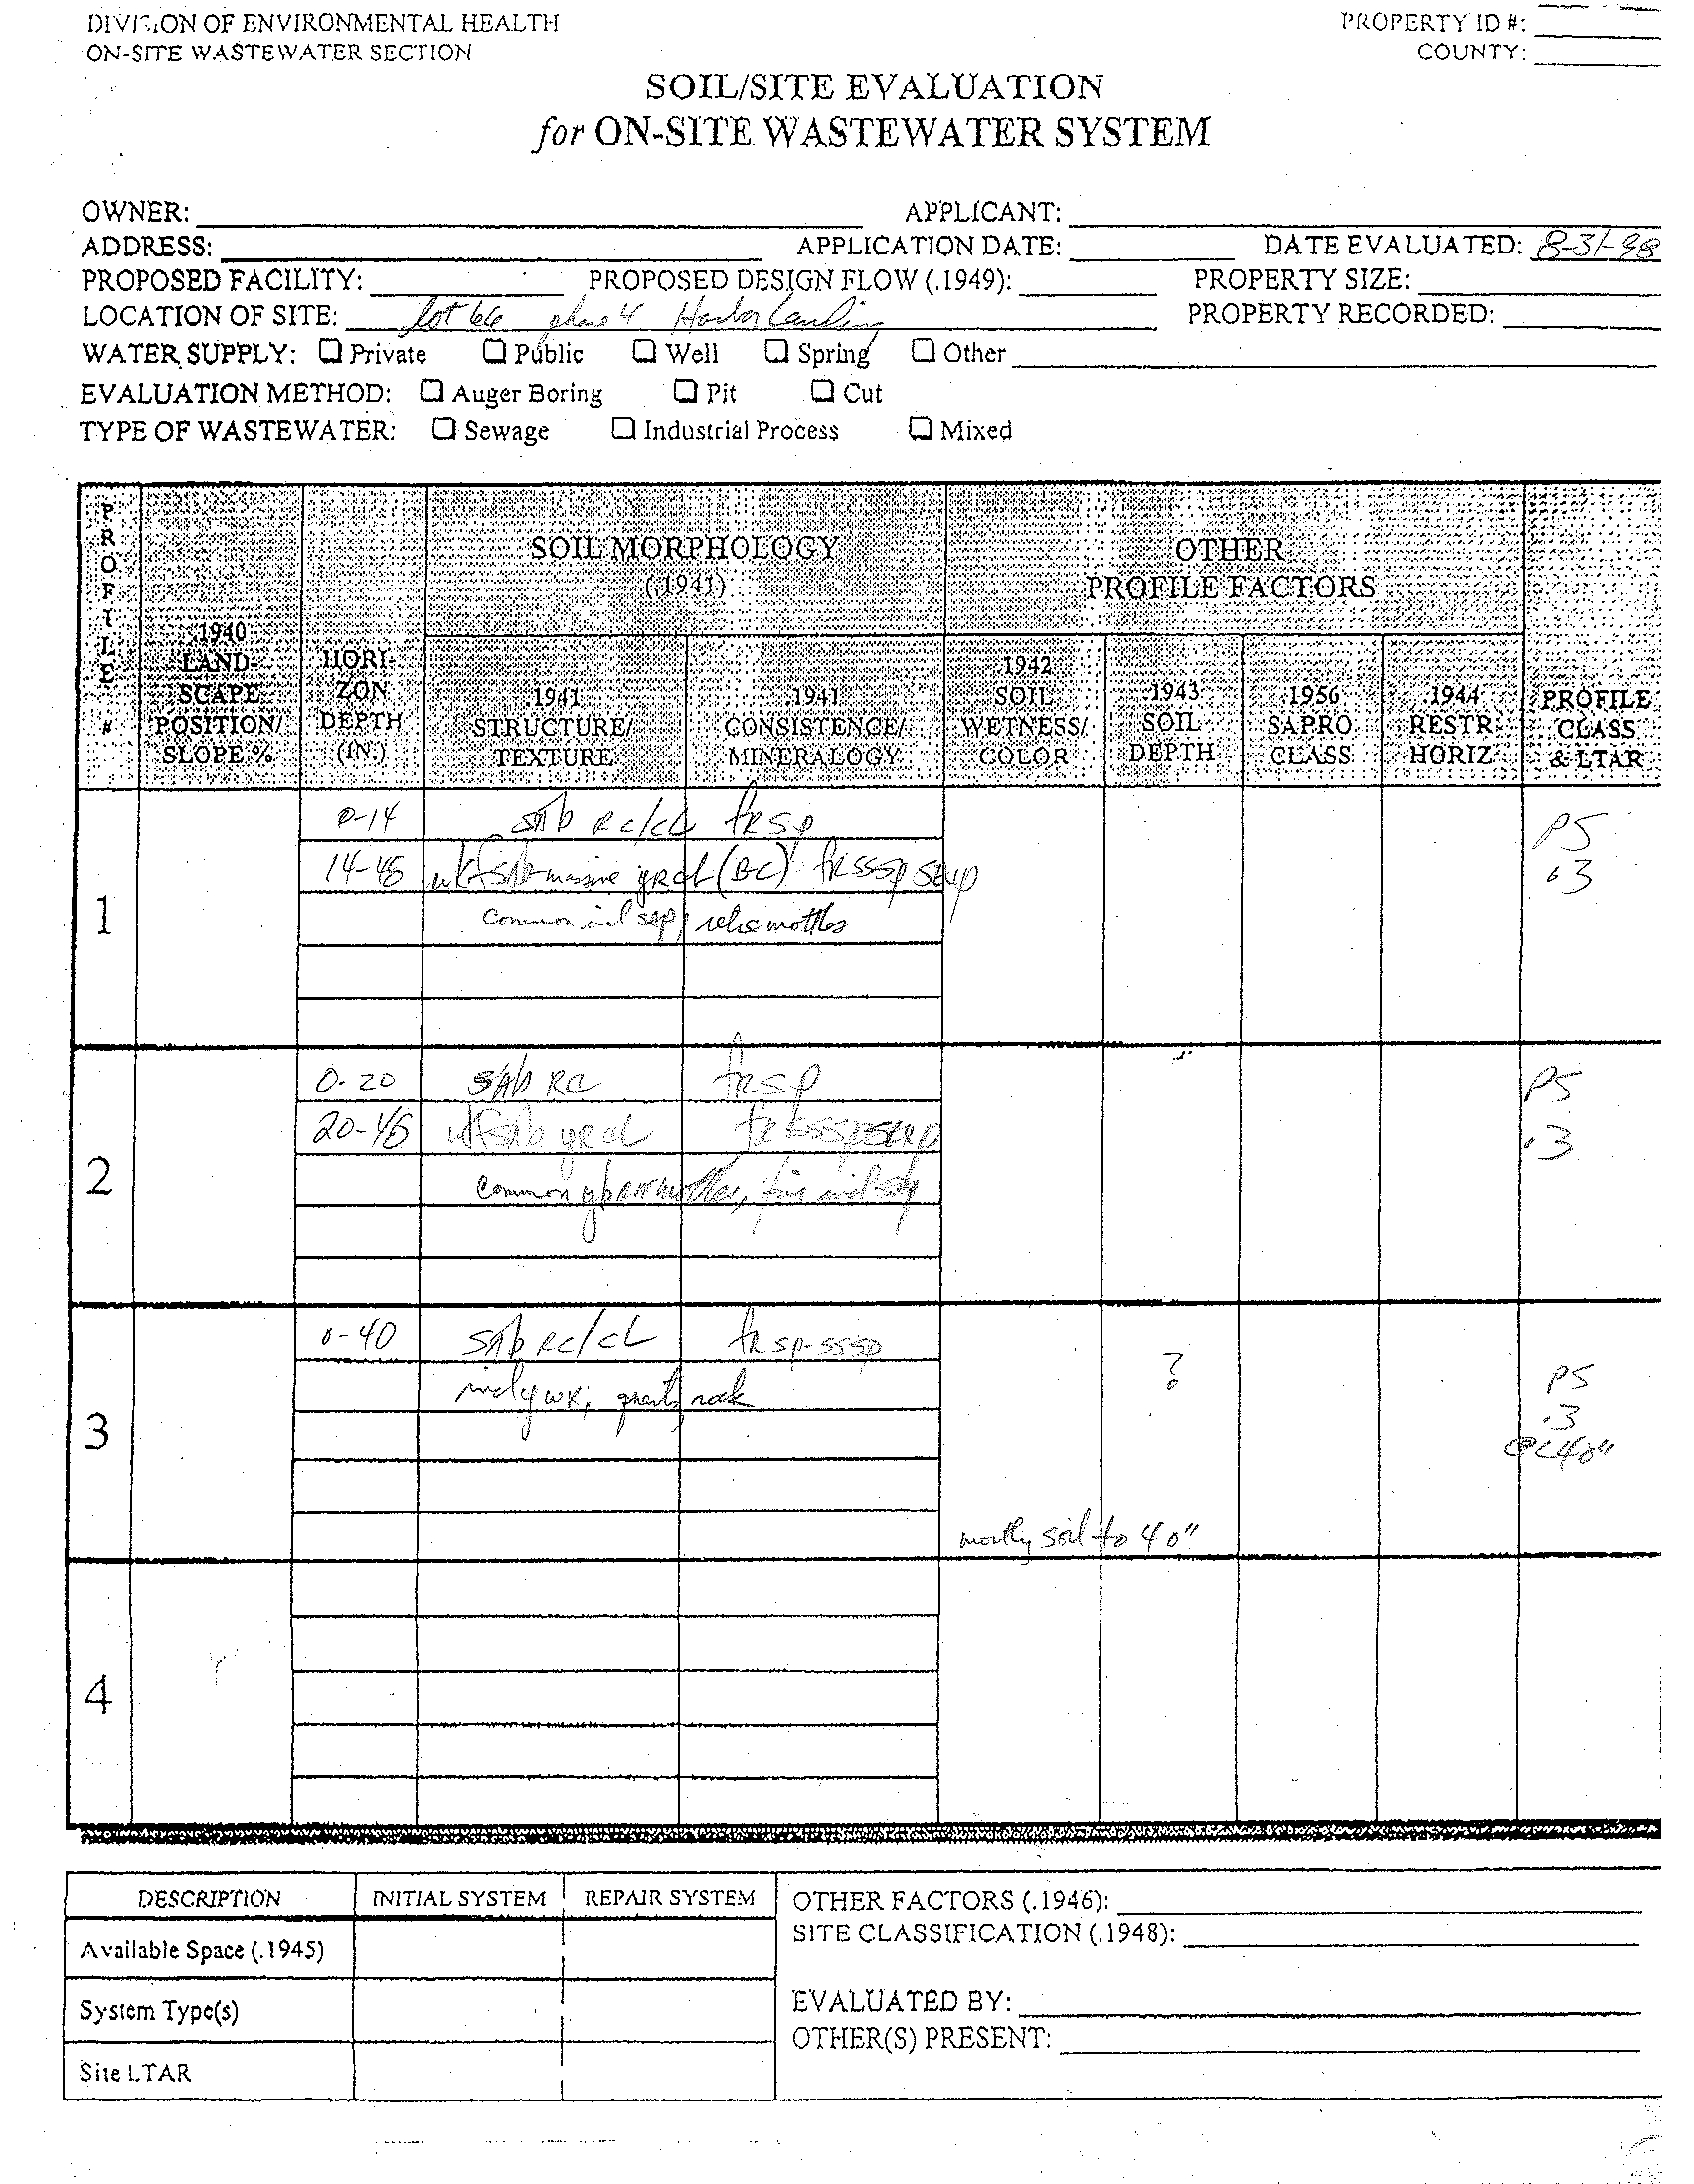 DIVISION OF ENVIRONMENTAL HEALTH
ON-SITE WASTEWATER SECTION
PROPERTY ID #:
COUNTY:
SOIL/SITE EVALUATION
for ON-SITE WASTEWATER SYSTEM
OWNER: APPLICANT:
ADDRESS: APPLICATION DATE: DATE EVALUATED: 8-31-98
PROPOSED FACILITY: PROPOSED DESIGN FLOW (.1949): PROPERTY SIZE:
LOCATION OF SITE: Lot 66 phase 4 Harbor Landing PROPERTY RECORDED:
WATER SUPPLY: ☐ Private ☐ Public ☐ Well ☐ Spring ☐ Other
EVALUATION METHOD: ☐ Auger Boring ☐ Pit ☐ Cut
TYPE OF WASTEWATER: ☐ Sewage ☐ Industrial Process ☐ Mixed
PROFILE #
.1940 LAND-SCAPE POSITION/ SLOPE %
HORI-ZON DEPTH (IN.)
SOIL MORPHOLOGY (.1941)
.1941 STRUCTURE/ TEXTURE
.1941 CONSISTENCE/ MINERALOGY
OTHER PROFILE FACTORS
.1942 SOIL WETNESS/ COLOR
.1943 SOIL DEPTH
.1956 SAPRO CLASS
.1944 RESTR HORIZ
PROFILE CLASS & LTAR
1
0-14 sab RC/CL frsp PS
14-48 wkfsab-massive yrcl (BC) frsssp .3
common sap, relic mottles
2
0-20 sab RC frsp PS
20-48 wkfsab yrcl .3
common mottles,
3
0-40 sab RC/CL frsp-sssp ? PS
wx; quartz rock .3
@<40"
mostly soil to 40"
4
DESCRIPTION INITIAL SYSTEM REPAIR SYSTEM
Available Space (.1945)
System Type(s)
Site LTAR
OTHER FACTORS (.1946):
SITE CLASSIFICATION (.1948):
EVALUATED BY:
OTHER(S) PRESENT: